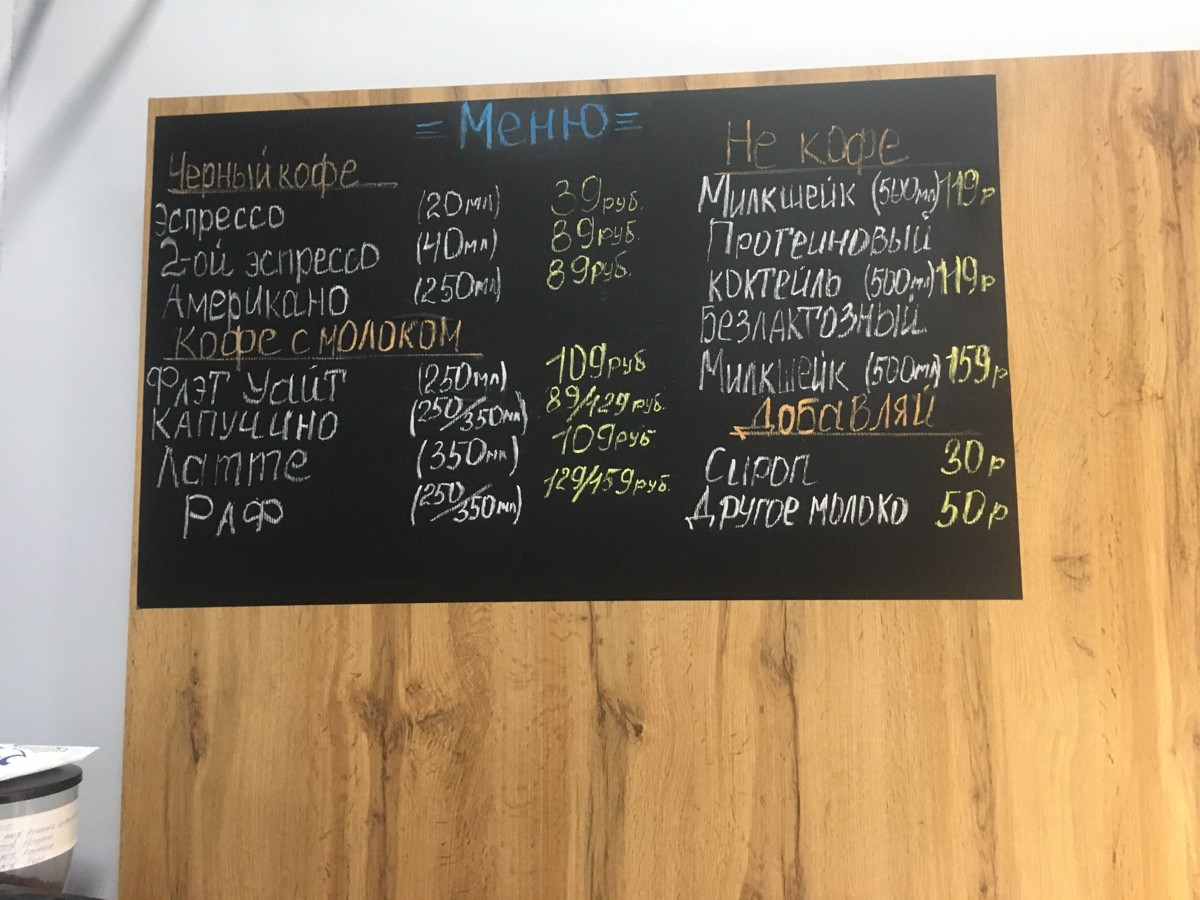 = Меню =
Черный кофе
Эспрессо (20мл) 39руб.
2-ой эспрессо (40мл) 89руб.
Американо (250мл) 89руб.
Кофе с молоком
Флэт Уайт (250мл) 109руб
Капучино (250/350мл) 89/129руб.
Латте (350мл) 109руб
Раф (250/350мл) 129/159руб.
Не кофе
Милкшейк (500мл) 119р
Протеиновый
коктейль (500мл) 119р
Безлактозный
Милкшейк (500мл) 159р
Добавляй
Сироп 30р
Другое молоко 50р